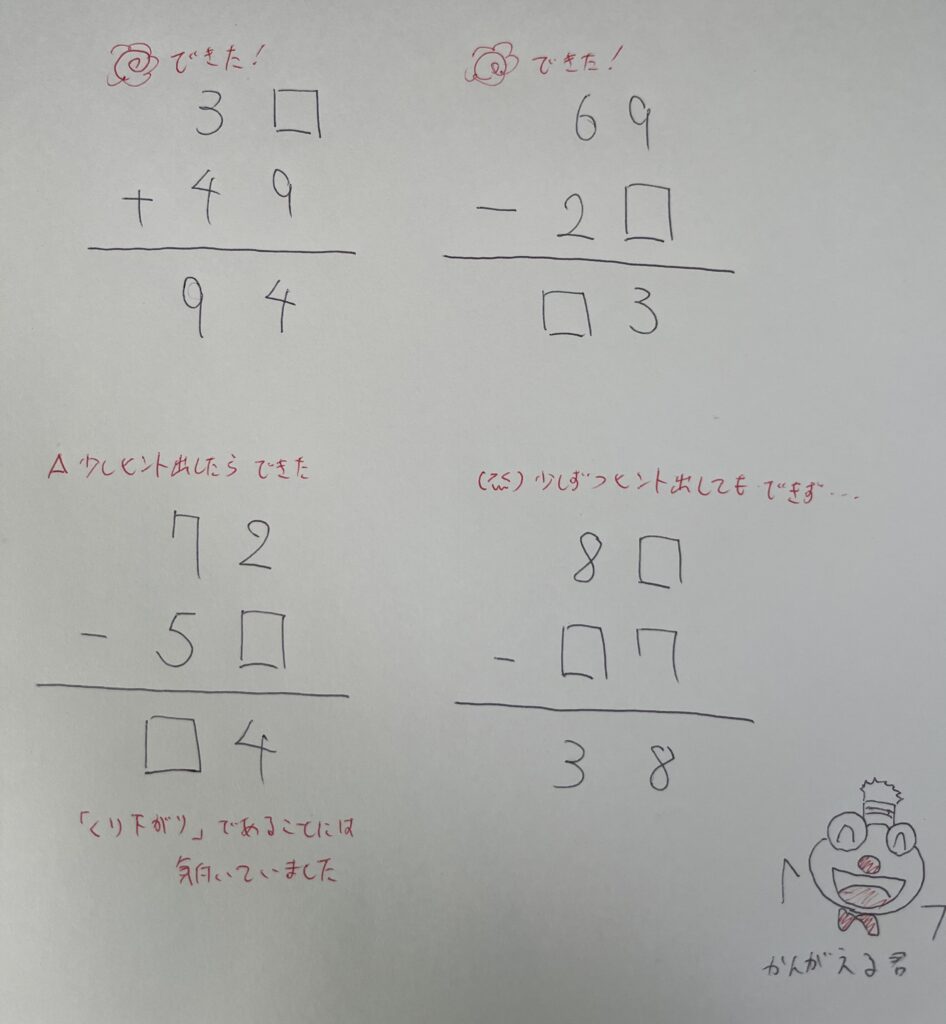 できた!
3 □
+ 4 9
9 4
できた!
6 9
- 2 □
□ 3
△ 少しヒント出したらできた
7 2
- 5 □
□ 4
「くり下がり」であることには
気付いていました
少しずつヒント出しても できず…
8 □
- □ 7
3 8
かんがえる君